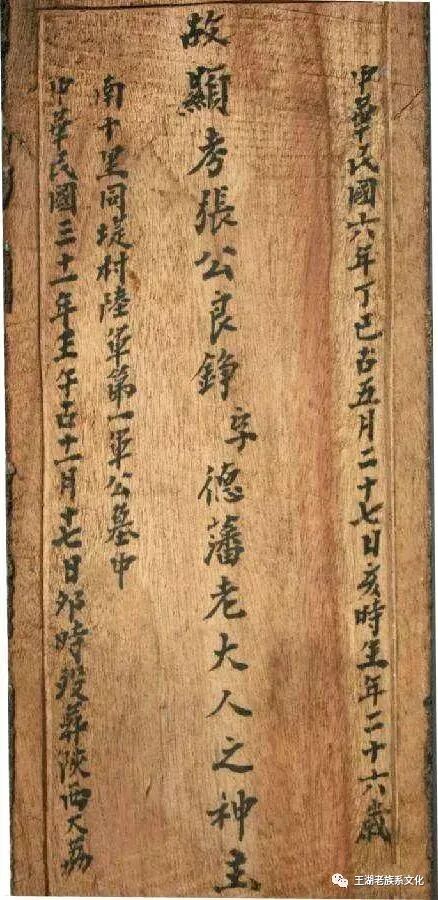 中華民國六年丁巳古五月二十七日亥時生年二十六歲
故顯考張公良錚字德藩老大人之神主
中華民國三十一年壬午古十一月十七日夘時歿葬陝西大荔
南十里同堤村陸軍第一軍公墓中
王湖老族系文化